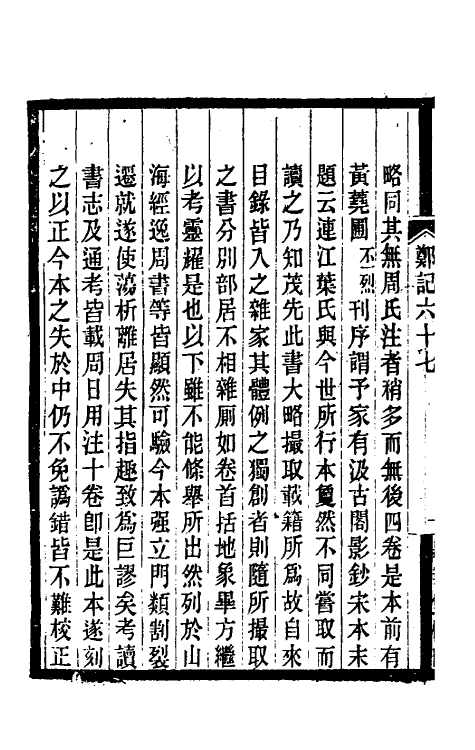 鄭記六十七
略同其無周氏注者稍多而無後四卷是本前有
黃蕘圃丕烈刊序謂予家有汲古閣影鈔宋本末
題云連江葉氏與今世所行本夐然不同嘗取而
讀之乃知茂先此書大略撮取載籍所爲故自來
目錄皆入之雜家其體例之獨創者則隨所撮取
之書分別部居不相雜厠如卷首括地象畢方繼
以考靈耀是也以下雖不能條舉所出然列於山
海經逸周書等皆顯然可驗今本强立門類割裂
遷就遂使蕩析離居失其指趣致爲巨謬矣考讀
書志及通考皆載周日用注十卷卽是此本遂刻
之以正今本之失於中仍不免譌錯皆不難校正